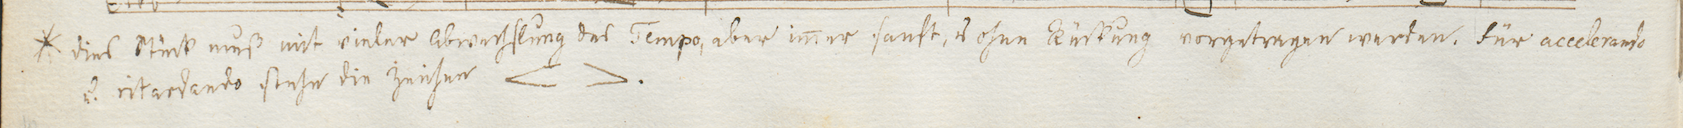 * dies Stück muß mit vieler Abwechslung des Tempo, aber im̅er sanft, & ohne Rückung vorgetragen werden. Für accelerando
& ritardando stehn die Zeichen < >.